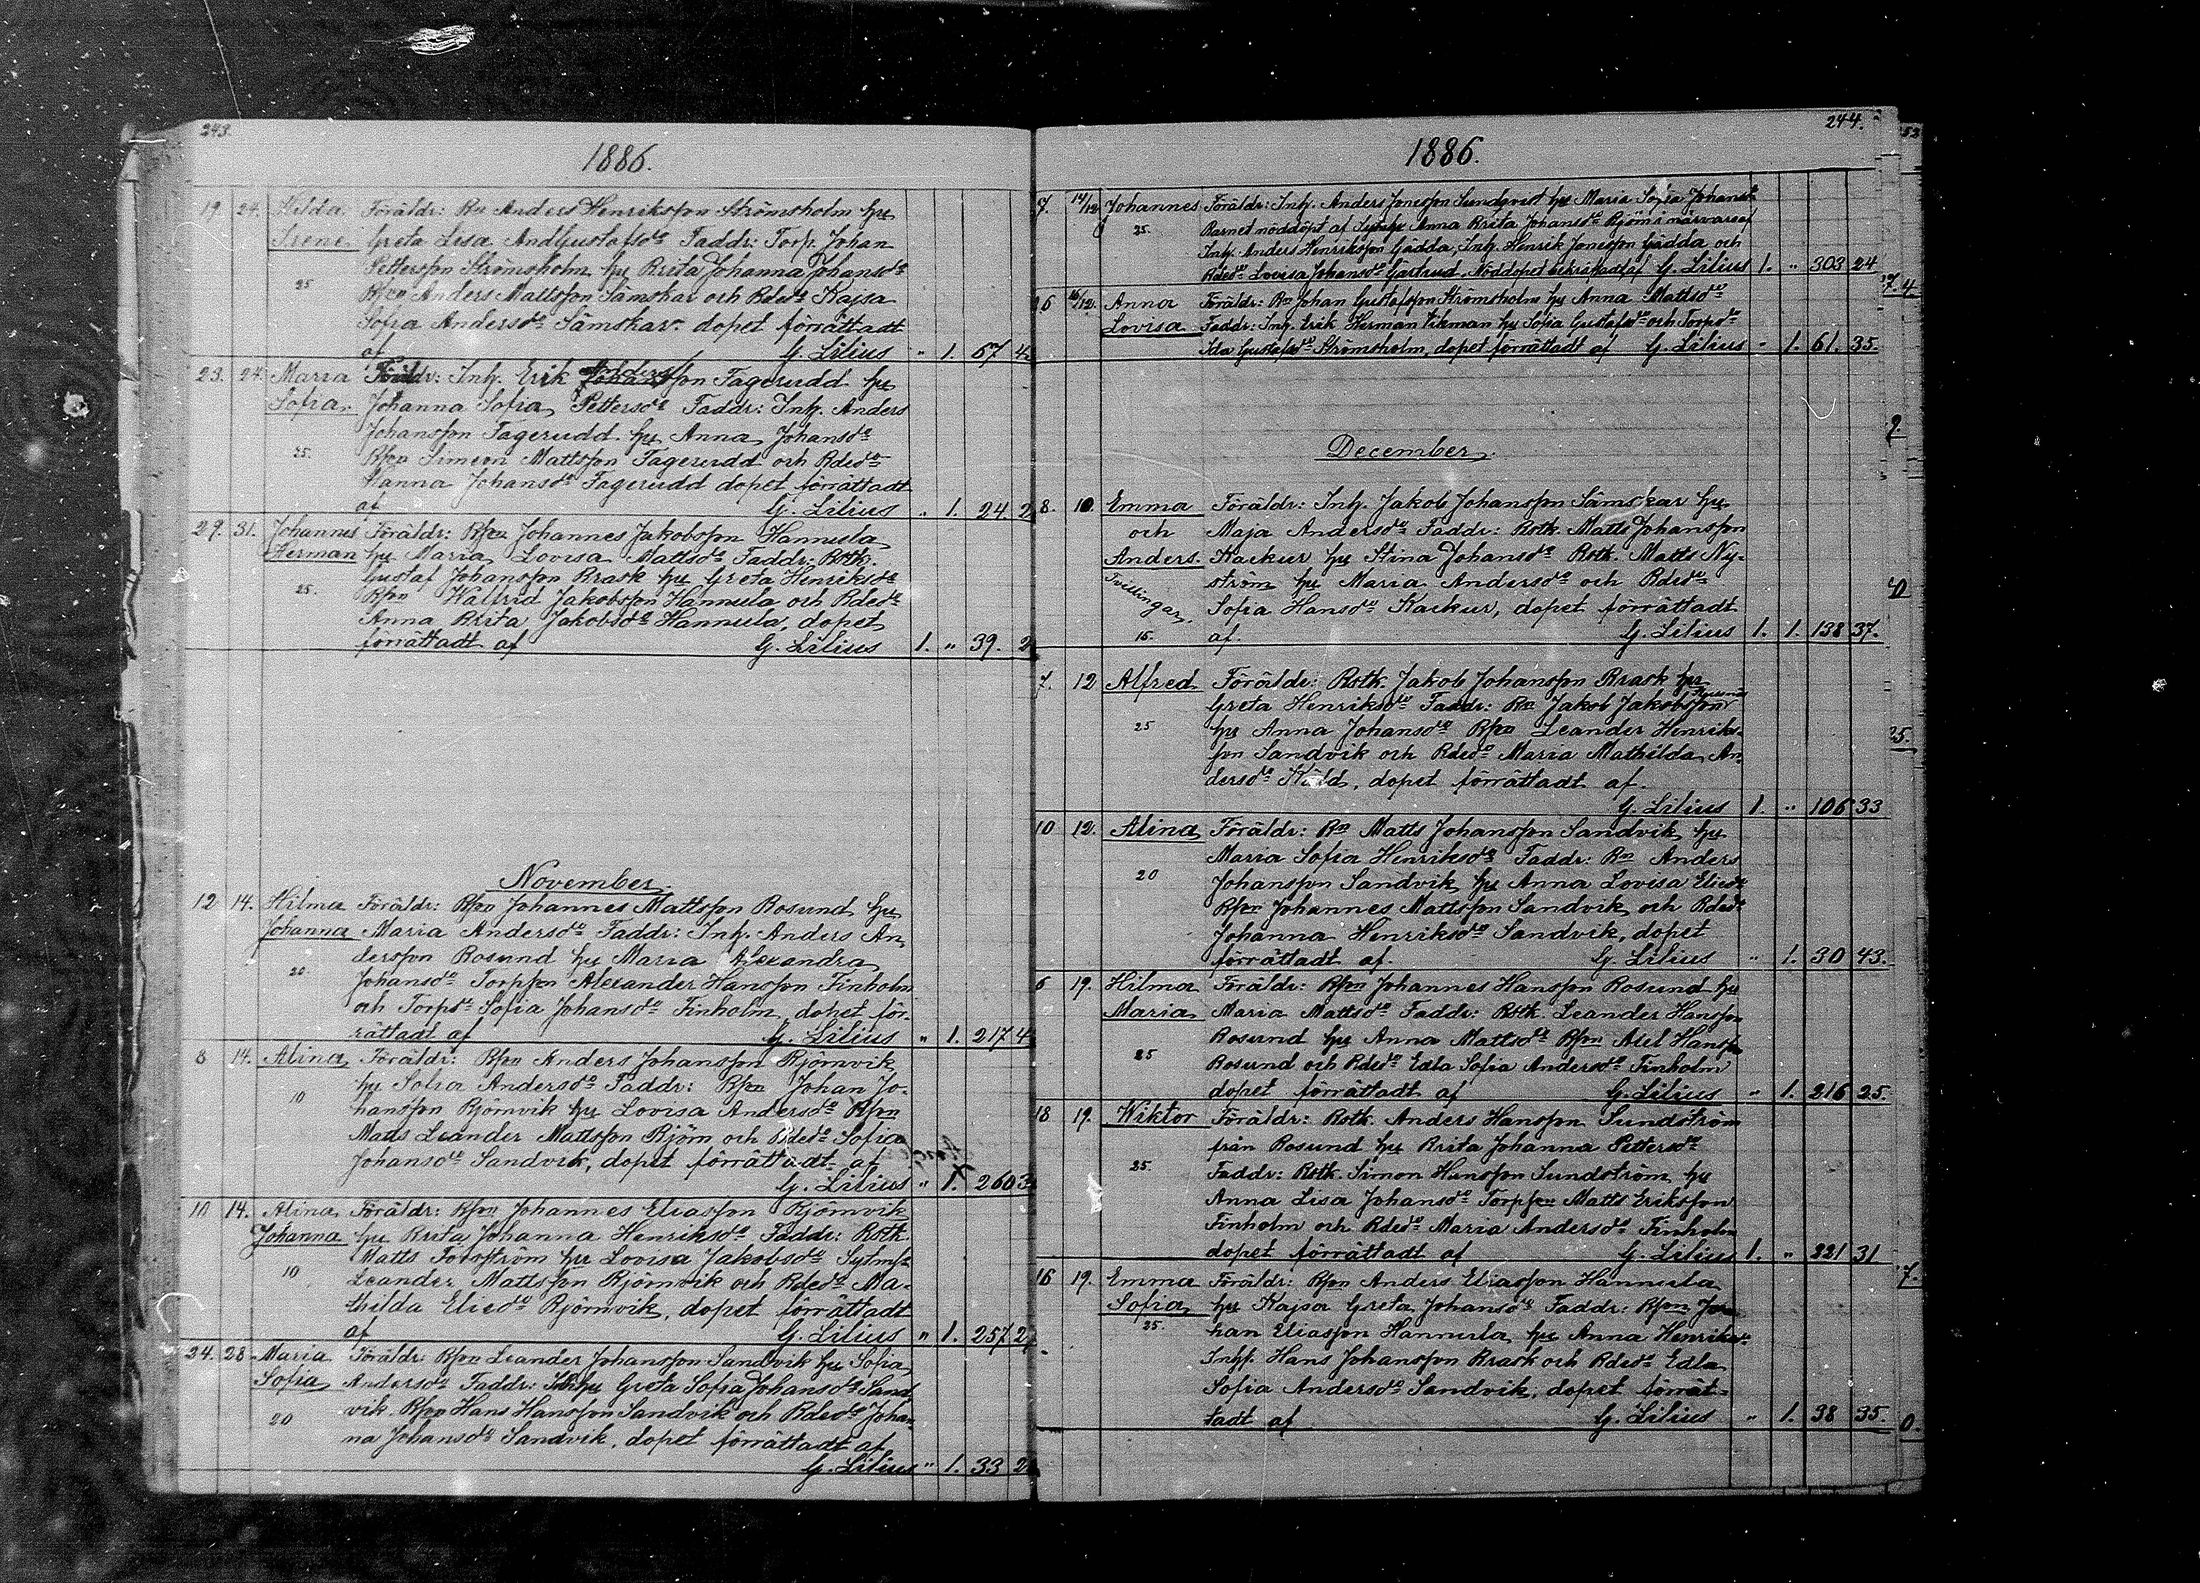 243.
1886.
19. 24. Hilda Föräldr: Bn Anders Henriksson Strömsholm hu
Irene Greta Lisa AndGustafsdr Faddr: Torp. Johan
Pettersson Strömsholm hu Brita Johanna Johansdr
25 Bson Anders Mattsson Sämskar och Bdedr Kajsa
Sofia Andersdr Sämskar. dopet förrättadt
af G. Lilius " 1. 67 4
23. 24. Maria Föräldr: Inh. Erik Andersson Fagerudd hu
Sofia. Johanna Sofia Pettersdr Faddr: Inh. Anders
Johansson Fagerudd hu Anna Johansdr
25. Bson Simeon Mattsson Fagerudd och Bdedr
Hanna Johansdr Fagerudd dopet förrättadt
af G. Lilius " 1. 24. 2
29. 31. Johannes Föräldr: Bson Johannes Jakobsson Hannula
Herman hu Maria Lovisa Mattsdr Faddr: Botk.
Gustaf Johansson Brask hu Greta Henriksdr
25. Bson Walfrid Jakobsson Hannula och Bdedr
Anna Brita Jakobsdr Hannula, dopet
förrättadt af G. Lilius 1. " 39. 2
November.
12 14. Hilma Föräldr: Bson Johannes Mattsson Bosund hu
Johanna Maria Andersdr Faddr: Inh. Anders An
dersson Bosund hu Maria Alexandra
20. Johansdr Torpson Alexander Hansson Finholm
och Torpdr Sofia Johansdr Finholm, dopet för-
rättadt af G. Lilius " 1. 217 4
8 14. Alina Föräldr: Bson Anders Johansson Björnvik
hu Sofia Andersdr Faddr: Bson Johan Jo-
10 hansson Björnvik hu Lovisa Andersdr Bson
Matts Leander Mattsson Björn och Bdedr Sofia
Johansdr Sandvik, dopet förrättadt af
G. Lilius " 1. 260 3
10 14. Alina Föräldr: Bson Johannes Eliasson Björnvik
Johanna hu Brita Johanna Henriksdr Faddr: Botk.
Matts Forsström hu Lovisa Jakobsdr
10 Leander Mattsson Björnvik och Bdedr Ma-
thilda Eliedr Björnvik, dopet förrättadt
af G. Lilius " 1. 257. 2
24. 28 Maria Föräldr: Bson Leander Johansson Sandvik hu Sofia
Sofia Andersdr Faddr: hu Greta Sofia Johansdr Sand
20 vik. Bson Hans Hansson Sandvik och Bdedr Johan-
na Johansdr Sandvik, dopet förrättadt af
G. Lilius " 1. 33 2
244.
1886.
7. 14/12 Johannes Föräldr: Inh. Anders Jonesson Sundqvist hu Maria Sofia Johansdr
25. Barnet nöddöpt af Anna Brita Johansdr Björn i närvaro af
Inh. Anders Henriksson Gädda, Inh. Henrik Jonesson Gädda och
Bdedr Lovisa Johansdr Gertrud. Nöddopet bekräftadt af G. Lilius 1. " 303 24
6 16/12. Anna Föräldr: Bn Johan Gustafsson Strömsholm hu Anna Mattsdr
Lovisa Faddr: Inh. Erik Herman Vikman hu Sofia Gustafsdr och Torpdr
Ida Gustafsdr Strömsholm, dopet förrättadt af G. Lilius " 1. 61. 35.
December.
8. 10 Emma Föräldr: Inh. Jakob Johansson Sämskar hu
och Maja Andersdr Faddr: Botk. Matts Johansson
Anders. Kackur hu Stina Johansdr Botk. Matts Ny-
Tvillingar. ström hu Maria Andersdr och Bdedr
Sofia Hansdr Kackur, dopet förrättadt
15. af. G. Lilius 1. 1. 138 37.
7. 12 Alfred Föräldr: Botk. Jakob Johansson Brask hu
Greta Henriksdr Faddr: Bn Jakob Jakobsson
25 hu Anna Johansdr Bson Leander Henriks-
son Sandvik och Bdedr Maria Mathilda An-
dersdr , dopet förrättadt af.
G. Lilius 1. " 106 33
10 12. Alina Föräldr: Bn Matts Johansson Sandvik hu
Maria Sofia Henriksdr Faddr: Bn Anders
20 Johansson Sandvik hu Anna Lovisa Eliedr
Bson Johannes Mattsson Sandvik och Bdedr
Johanna Henriksdr Sandvik, dopet
förrättadt af. G. Lilius " 1. 30 43.
6 19. Hilma Föräldr: Bson Johannes Hansson Bosund hu
Maria Maria Mattsdr Faddr: Botk. Leander Hansson
25 Bosund hu Anna Mattsdr Bson Axel Hansson
Bosund och Bdedr Edla Sofia Andersdr Finholm
dopet förrättadt af G. Lilius " 1. 216 25.
18 19. Wiktor Föräldr: Botk. Anders Hansson Sundström
från Bosund hu Brita Johanna Pettersdr
25. Faddr: Botk. Simon Hansson Sundström hu
Anna Lisa Johansdr Torpson Matts Eriksson
Finholm och Bdedr Maria Andersdr Finholm
dopet förrättadt af G. Lilius 1. " 221 31
16 19. Emma Föräldr: Bson Anders Eliasson Hannula
Sofia hu Kajsa Greta Johansdr Faddr: Bson Jo
25. han Eliasson Hannula hu Anna Henriksdr
Inhs. Hans Johansson Brask och Bdedr Edla
Sofia Andersdr Sandvik, dopet förrät-
tadt af G. Lilius " 1. 38 35.